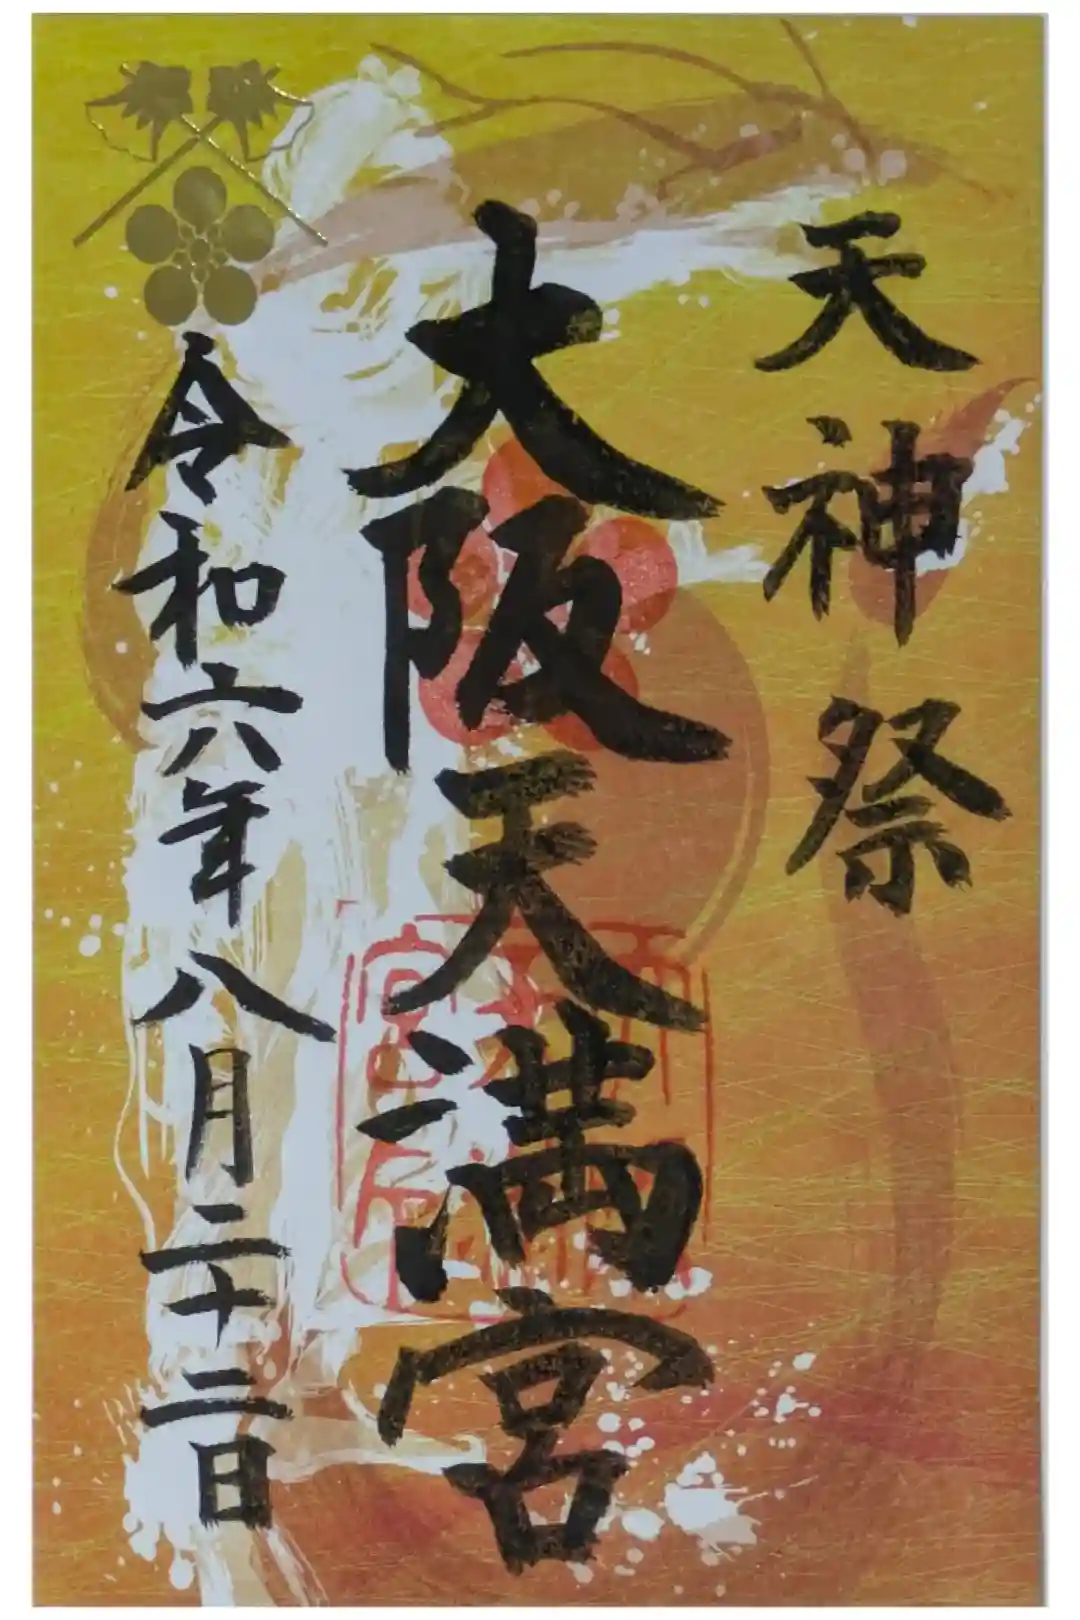 天神祭
大阪天満宮
令和六年八月二十二日